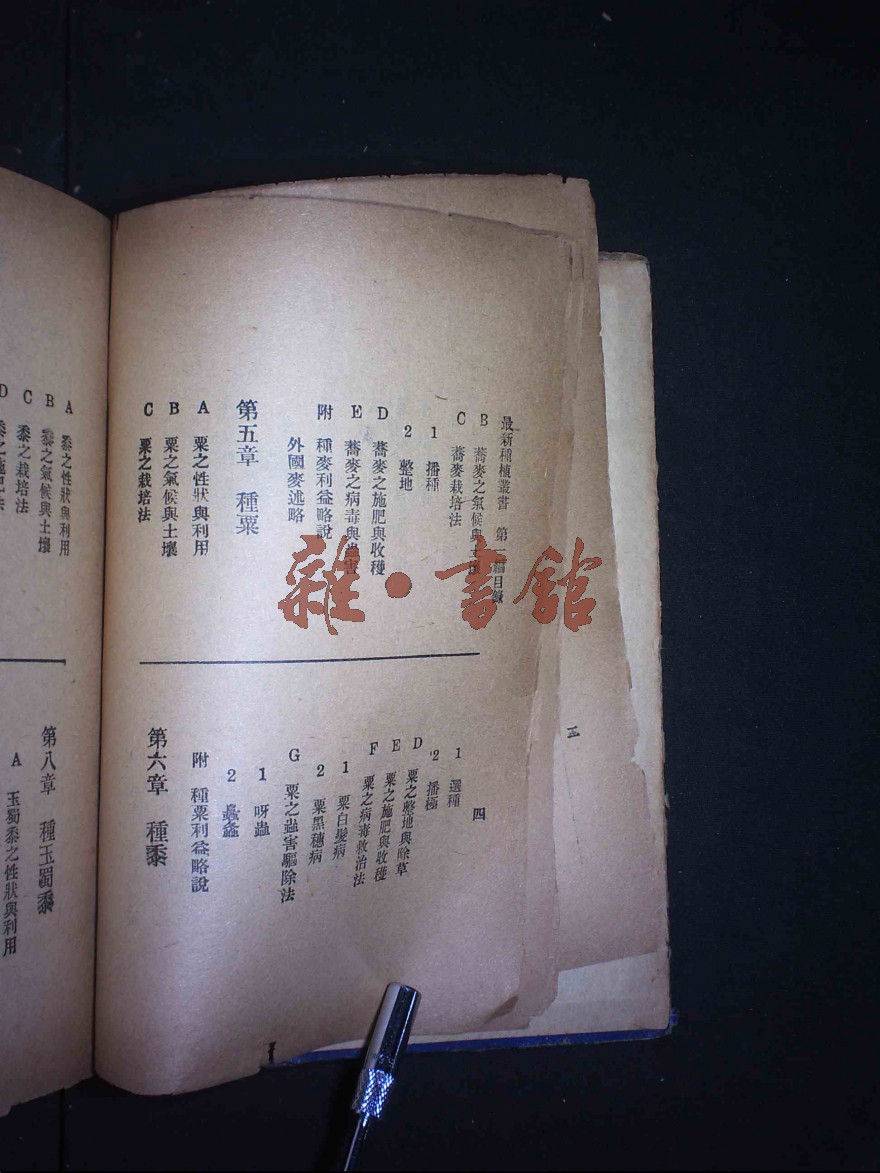 最新種植叢書　第一篇目錄
四
B　蕎麥之氣候與土壤
C　蕎麥栽培法
1　播種
2　整地
D　蕎麥之施肥與收穫
E　蕎麥之病毒與蟲害
附　種麥利益略說
外國麥述略
第五章　種粟
A　粟之性狀與利用
B　粟之氣候與土壤
C　粟之栽培法
1　選種
2　播種
D　粟之整地與除草
E　粟之施肥與收穫
F　粟之病毒救治法
1　粟白髮病
2　粟黑穗病
G　粟之蟲害驅除法
1　呀蟲
2　螽
附　種粟利益略說
第六章　種黍
A　黍之性狀與利用
B　黍之氣候與土壤
C　黍之栽培法
D　黍之施肥法
第八章　種玉蜀黍
A　玉蜀黍之性狀與利用
三
雜·書館